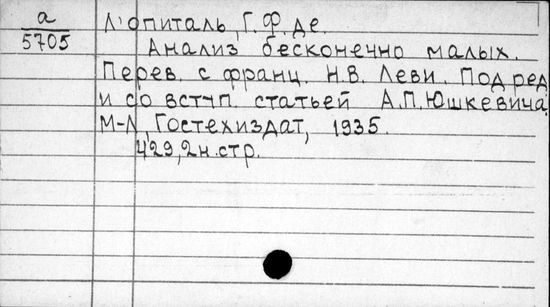 а
5705
Л'опиталь, Г.Ф. де.
Анализ бесконечно малых.
Перев. с франц. Н.В. Леви. Под ред
и со вступ. статьей А.П. Юшкевича.
М-Л, Гостехиздат, 1935.
429, 2 н. стр.